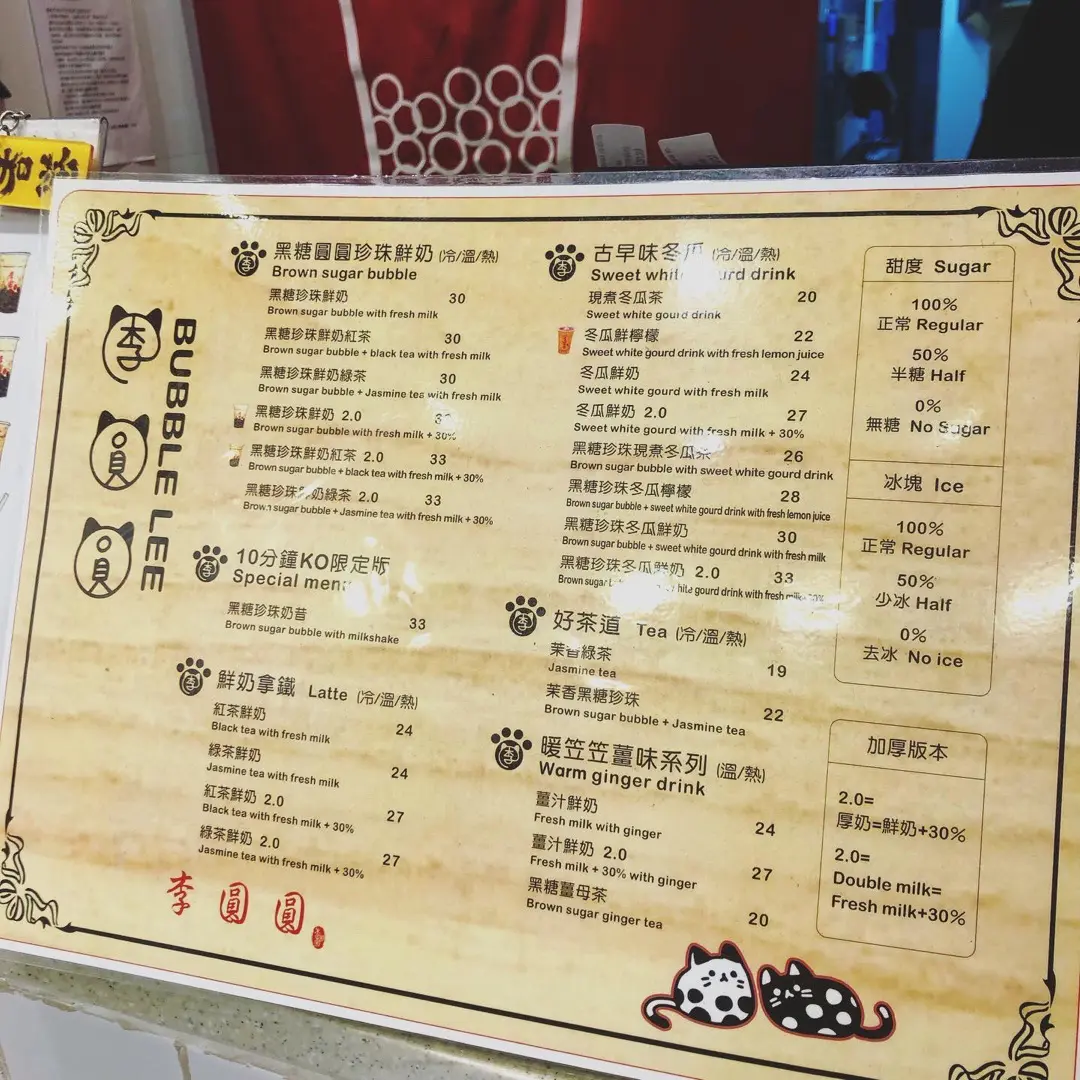 李
圓
圓
BUBBLE LEE
黑糖圓圓珍珠鮮奶 (冷/溫/熱)
Brown sugar bubble
黑糖珍珠鮮奶 30
Brown sugar bubble with fresh milk
黑糖珍珠鮮奶紅茶 30
Brown sugar bubble + black tea with fresh milk
黑糖珍珠鮮奶綠茶 30
Brown sugar bubble + Jasmine tea with fresh milk
黑糖珍珠鮮奶 2.0
Brown sugar bubble with fresh milk + 30%
黑糖珍珠鮮奶紅茶 2.0 33
Brown sugar bubble + black tea with fresh milk + 30%
黑糖珍珠鮮奶綠茶 2.0 33
Brown sugar bubble + Jasmine tea with fresh milk + 30%
10分鐘KO限定版
Special menu
黑糖珍珠奶昔 33
Brown sugar bubble with milkshake
鮮奶拿鐵 Latte (冷/溫/熱)
紅茶鮮奶 24
Black tea with fresh milk
綠茶鮮奶 24
Jasmine tea with fresh milk
紅茶鮮奶 2.0 27
Black tea with fresh milk + 30%
綠茶鮮奶 2.0 27
Jasmine tea with fresh milk + 30%
李圓圓
古早味冬瓜 (冷/溫/熱)
Sweet white gourd drink
現煮冬瓜茶 20
Sweet white gourd drink
冬瓜鮮檸檬 22
Sweet white gourd drink with fresh lemon juice
冬瓜鮮奶 24
Sweet white gourd with fresh milk
冬瓜鮮奶 2.0 27
Sweet white gourd with fresh milk + 30%
黑糖珍珠現煮冬瓜茶 26
Brown sugar bubble with sweet white gourd drink
黑糖珍珠冬瓜檸檬 28
Brown sugar bubble + sweet white gourd drink with fresh lemon juice
黑糖珍珠冬瓜鮮奶 30
Brown sugar bubble + sweet white gourd drink with fresh milk
黑糖珍珠冬瓜鮮奶 2.0 33
Brown sugar white gourd drink with fresh milk
好茶道 Tea (冷/溫/熱)
茉香綠茶 19
Jasmine tea
茉香黑糖珍珠 22
Brown sugar bubble + Jasmine tea
暖笠笠薑味系列 (溫/熱)
Warm ginger drink
薑汁鮮奶 24
Fresh milk with ginger
薑汁鮮奶 2.0 27
Fresh milk + 30% with ginger
黑糖薑母茶 20
Brown sugar ginger tea
甜度 Sugar
100%
正常 Regular
50%
半糖 Half
0%
無糖 No Sugar
冰塊 Ice
100%
正常 Regular
50%
少冰 Half
0%
去冰 No ice
加厚版本
2.0=
厚奶=鮮奶+30%
2.0=
Double milk=
Fresh milk+30%